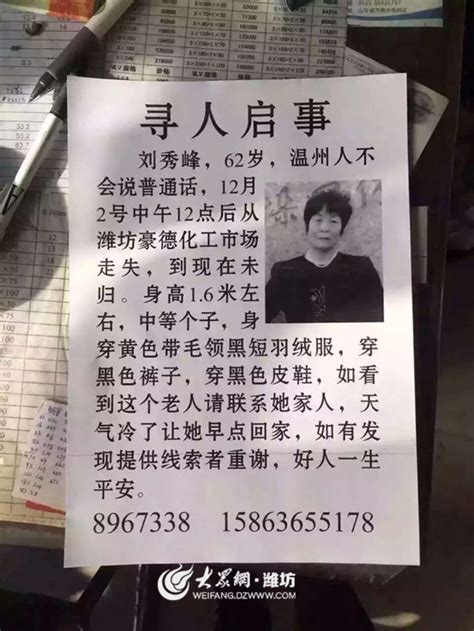 寻人启事
刘秀峰，62岁，温州人不
会说普通话，12月
2号中午12点后从
潍坊豪德化工市场
走失，到现在未
归。身高1.6米左
右，中等个子，身
穿黄色带毛领黑短羽绒服，穿
黑色裤子，穿黑色皮鞋，如看
到这个老人请联系她家人，天
气冷了让她早点回家，如有发
现提供线索者重谢，好人一生
平安。
8967338 15863655178
大众网·潍坊
WEIFANG.DZWWW.COM